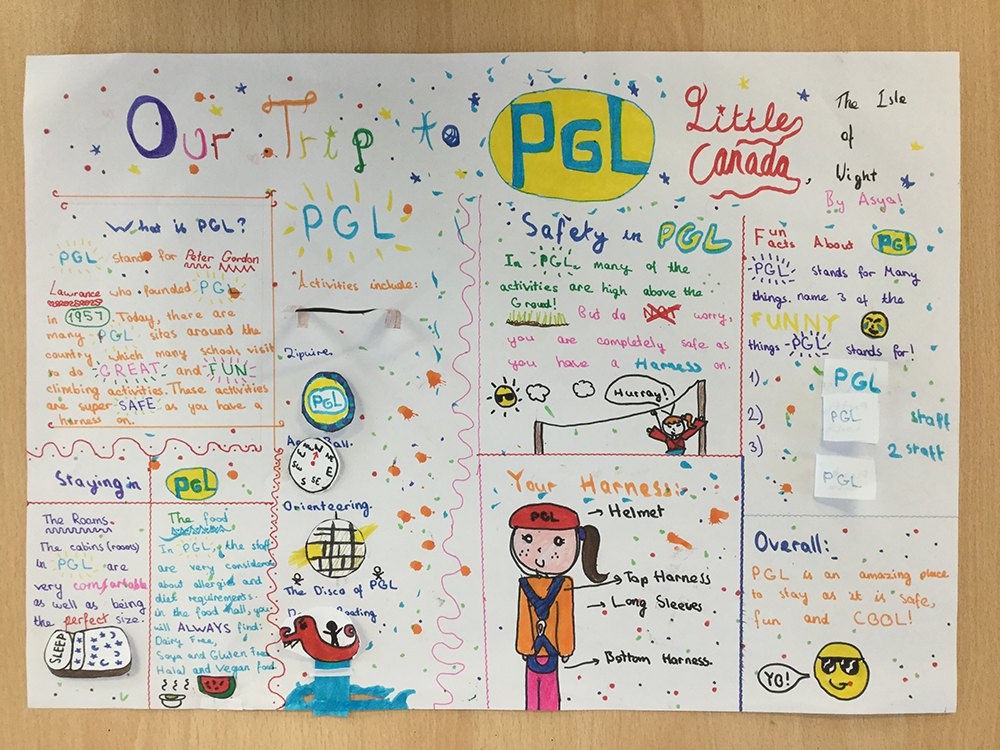 Our Trip to PGL Little Canada, The Isle
of
Wight
By Asya!
What is PGL?
PGL stands for Peter Gordon
Lawrance who founded PGL
in 1957. Today, there are
many PGL sites around the
country, which many schools visit
to do GREAT and FUN
climbing activities. These activities
are super SAFE as you have a
harness on.
Staying in PGL
The Rooms.
The cabins (rooms)
in PGL are
very comfortable
as well as being
the perfect size.
SLEEP
The food
In PGL, the staff
are very considerate
about allergies and
diet requirements.
in the food hall, you
will ALWAYS find:
Dairy Free,
Soya and Gluten Free
Halal and Vegan food.
PGL
Activities include:
Zipwire.
PGL
Ball.
N
NE
E
SE
S
SW
W
Orienteering.
The Disco of PGL
Boating
Safety in PGL
In PGL, many of the
activities are high above the
Ground!
But do NOT worry,
you are completely safe as
you have a Harness on.
Hurray!!
Your Harness:
PGL
Helmet
Top Harness
Long Sleeves
Bottom Harness.
Fun
Facts About PGL
PGL stands for Many
things. name 3 of the
FUNNY
things PGL stands for!
1) PGL
2) PGL staff
3) 2 staff
PGL
Overall:
PGL is an amazing place
to stay as it is safe,
fun and COOL!
YO!